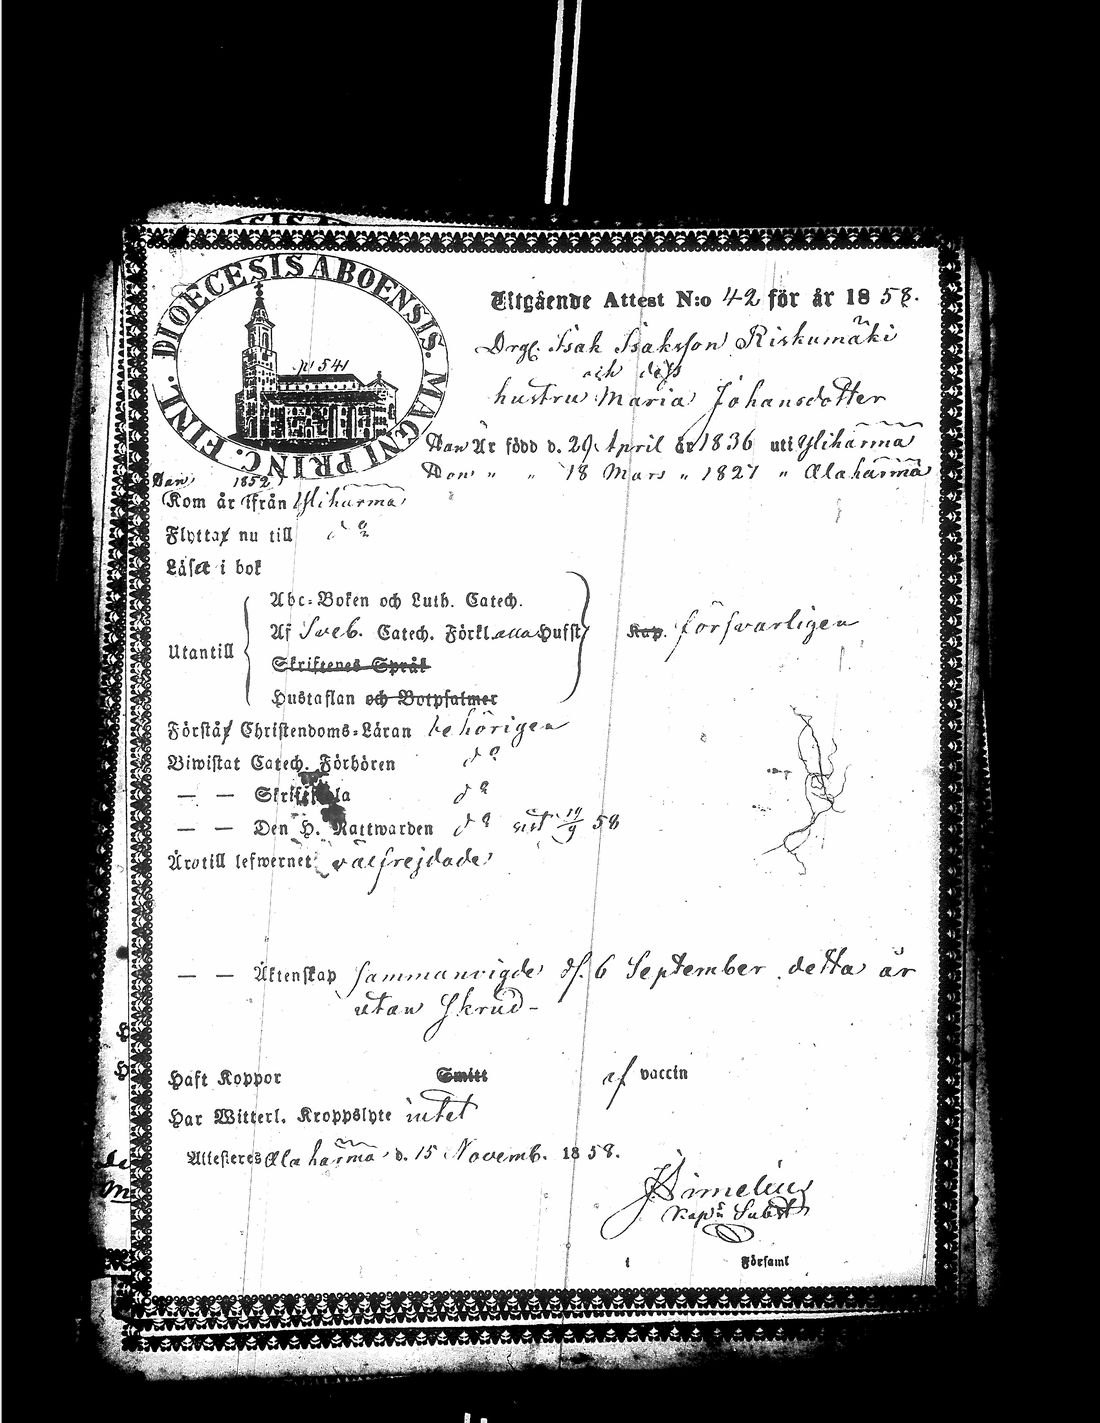 DIOECESIS ABOENSIS. MAGNI PRINC. FINL.
p 541
Utgående Attest N:o 42 för år 1858.
Drge Isak Isaksson Riskumäki
och dess
hustru Maria Johansdotter
Han Är född d. 29 April år 1836 uti Ylihärmä
Hon " " 18 Mars " 1827 " Alahärmä
Han 1852
Kom år ifrån Ylihärmä
Flytta nu till do
Läsa i bok
Utantill
Abc-Boken och Luth. Catech.
Af Sveb. Catech. Förkl. alla Hufst
Kap. försvarligen
Skriftenes Språk
Hustaflan och Botpsalmer
Förstå Christendoms-Läran behörigen
Biwistat Catech. Förhören do
— — Skriftskola do
— — Den H. Nattwarden do sist 19/9 58
Äro till lefwernet välfrejdade
— — Äktenskap sammanvigde d. 6 September detta år
utan skrud -
Haft Koppor Smitt af vaccin
Har Witterl. Kroppslyte intet
Attesteras Alahärmä d. 15 Novemb. 1858.
Simelius
Kap:s Subst
i Församl